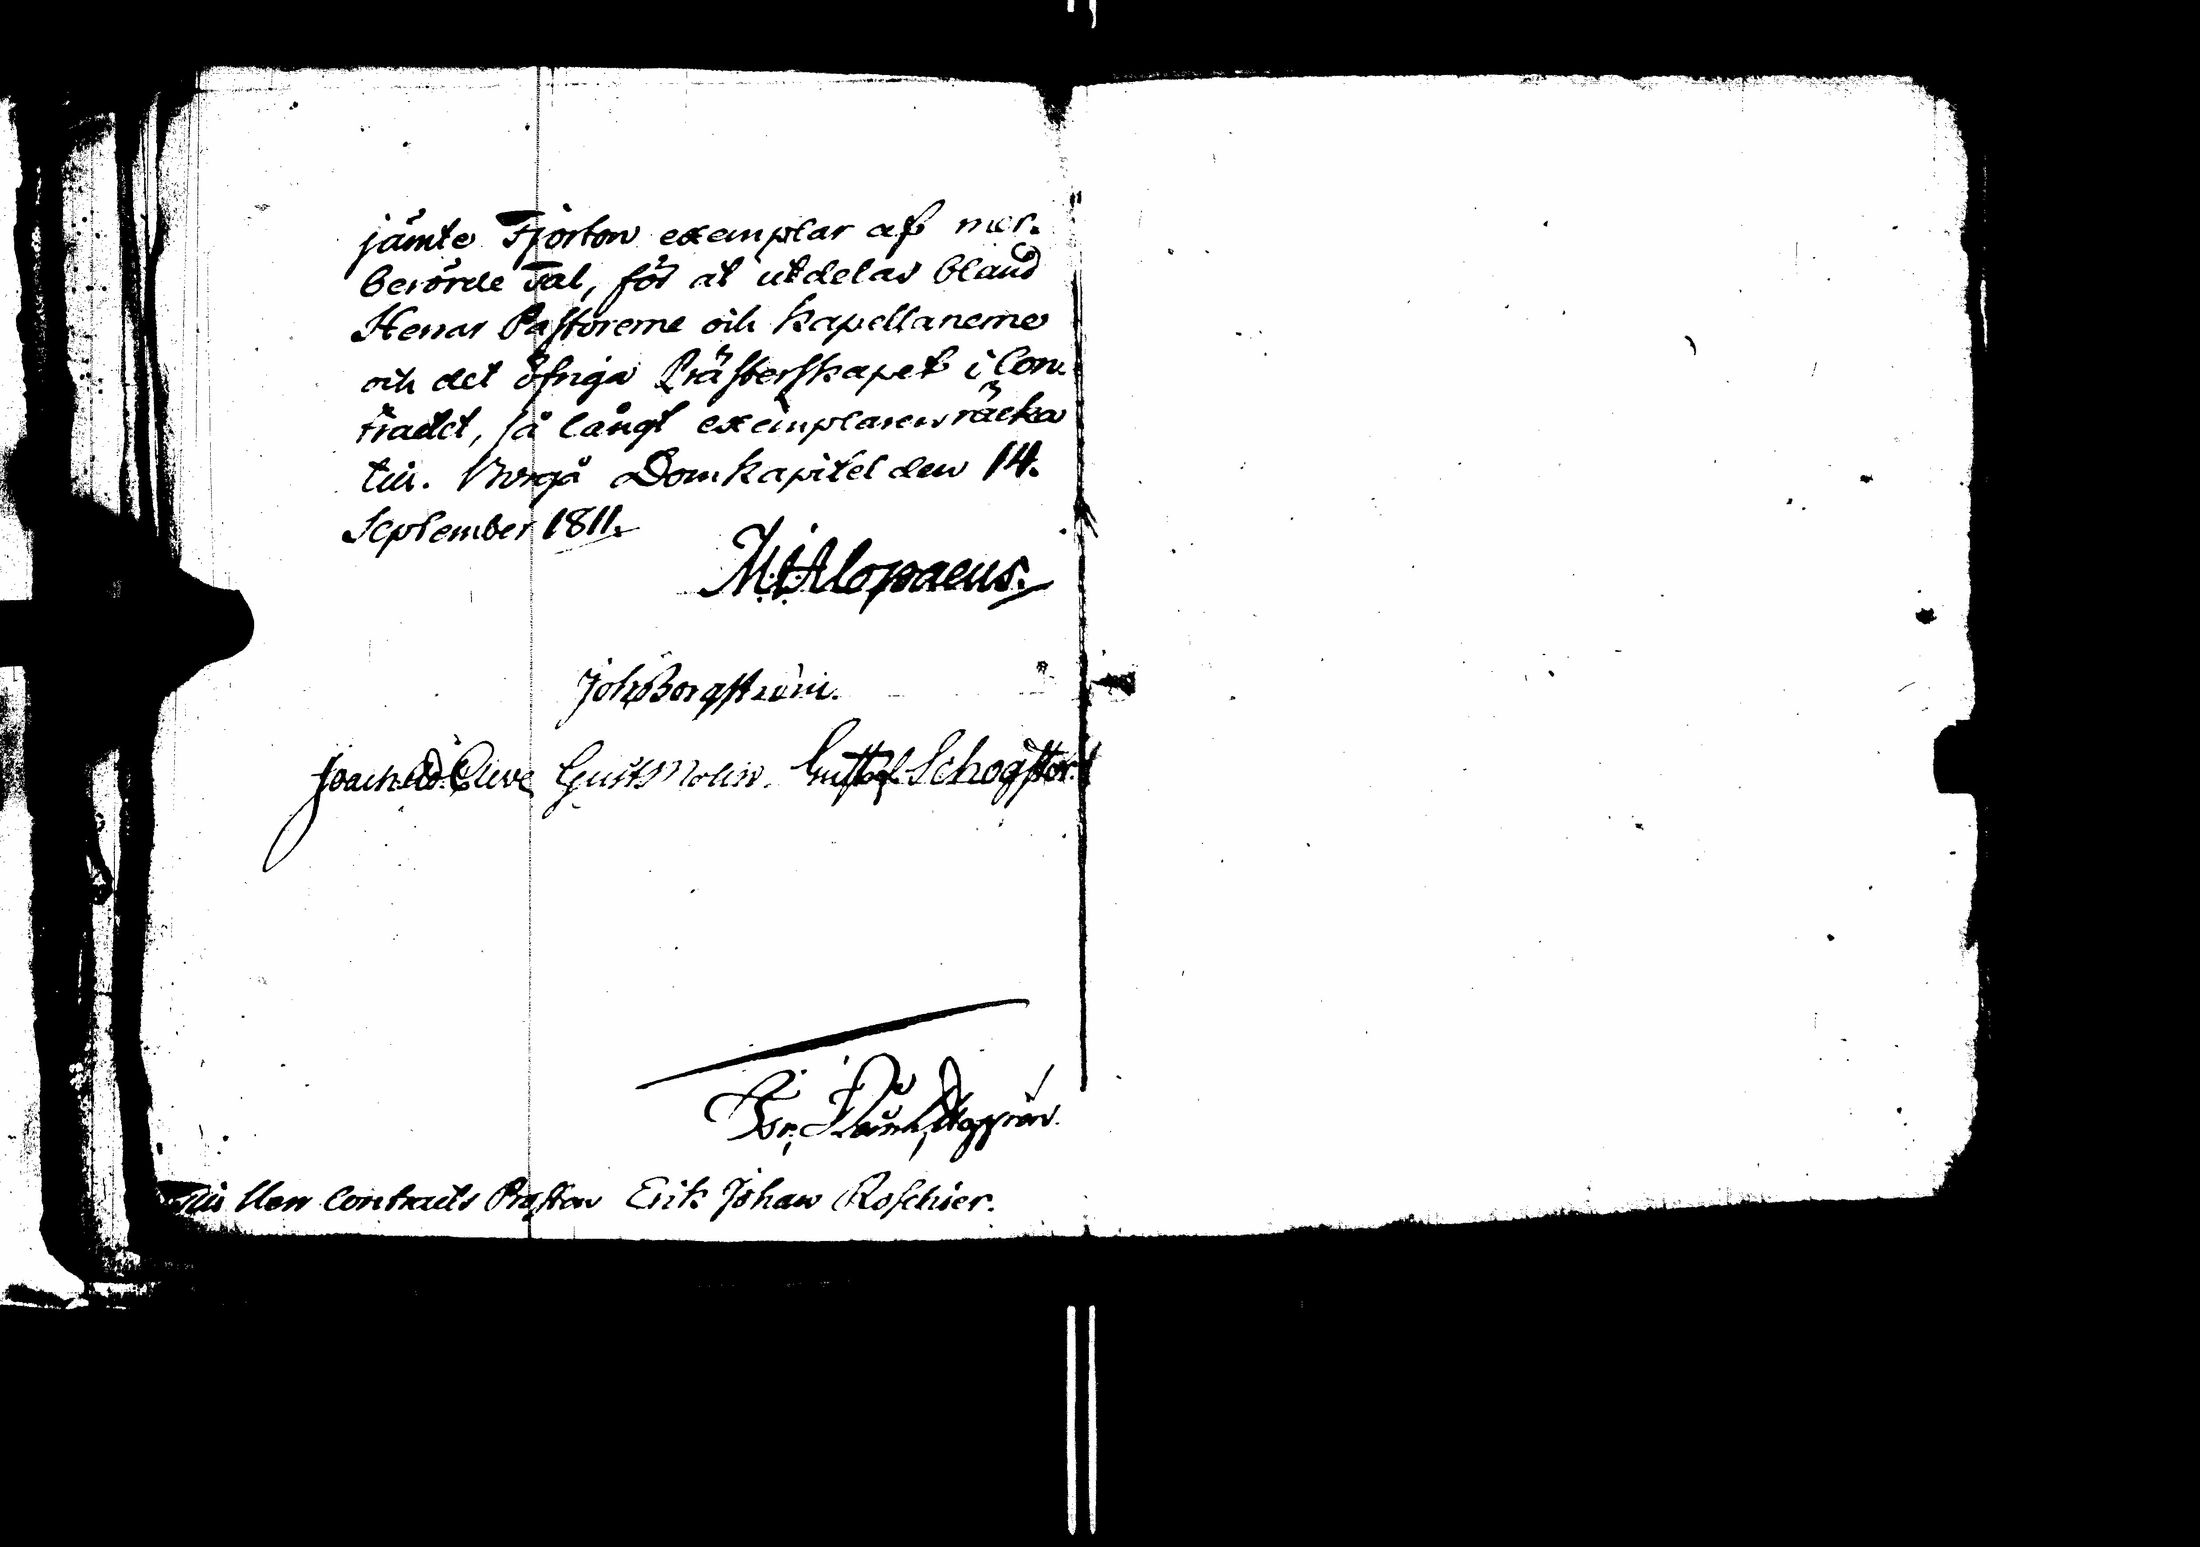 jämte Fjorton exemplar af mer-
berörde Tal, för at utdelas bland
Herrar Pastorerne och Kapellanerne
och det öfriga Prästerskapet i Con-
tractet, så långt exemplaren räcka
till. Borgå Domkapitel den 14.
September 1811.
M. Alopaeus.
Joh Borgström.
Joach. Ad. Cleve Gust Molin. Gustaf Schogster.
Til Herr Contracts Prosten Erik Johan Roschier.